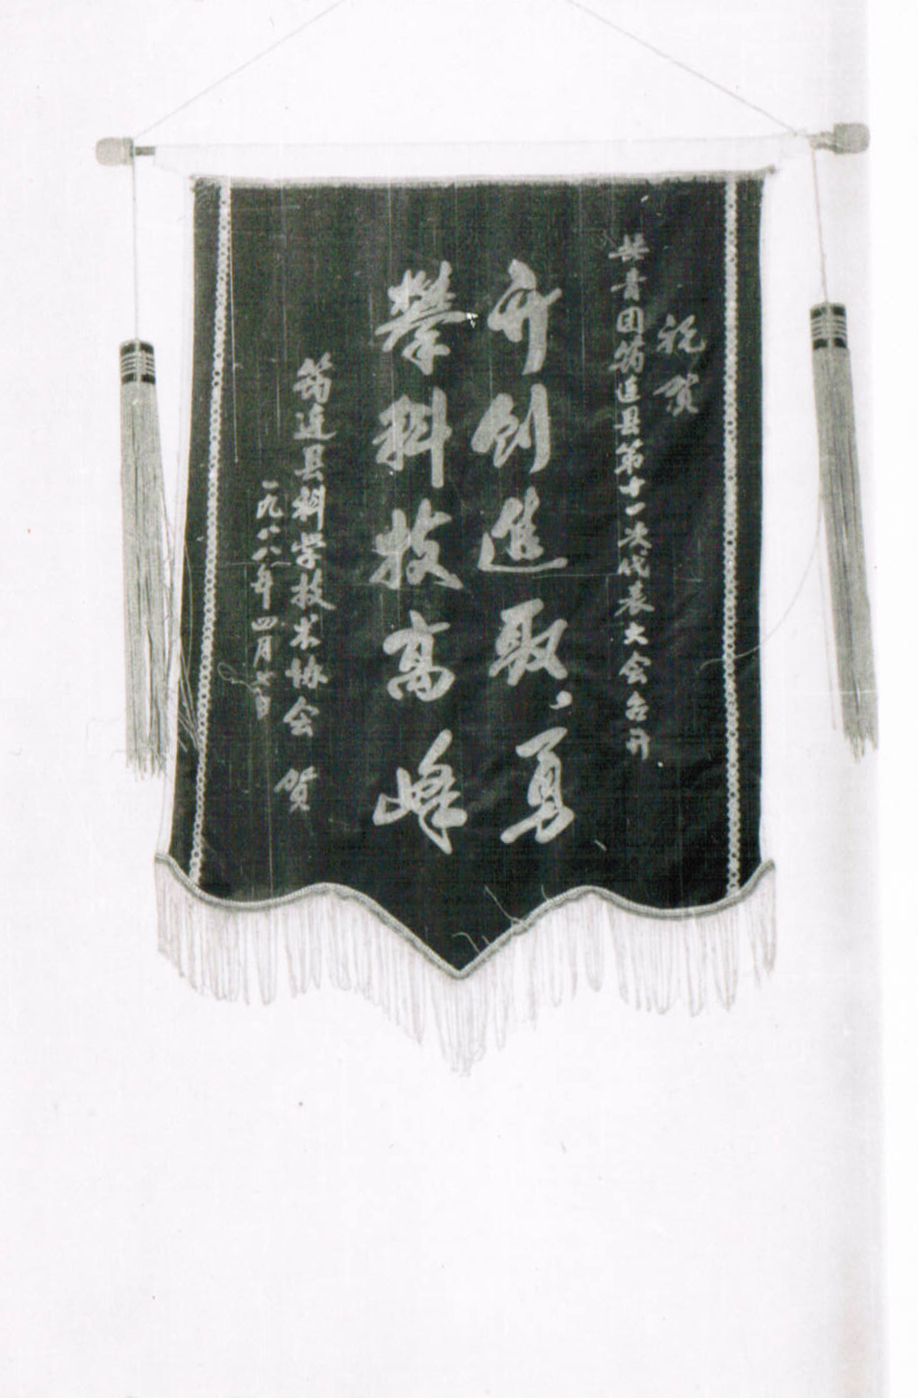 祝贺
共青团筠连县第十一次代表大会召开
开创进取，勇
攀科技高峰
筠连县科学技术协会 贺
一九八八年四月廿日